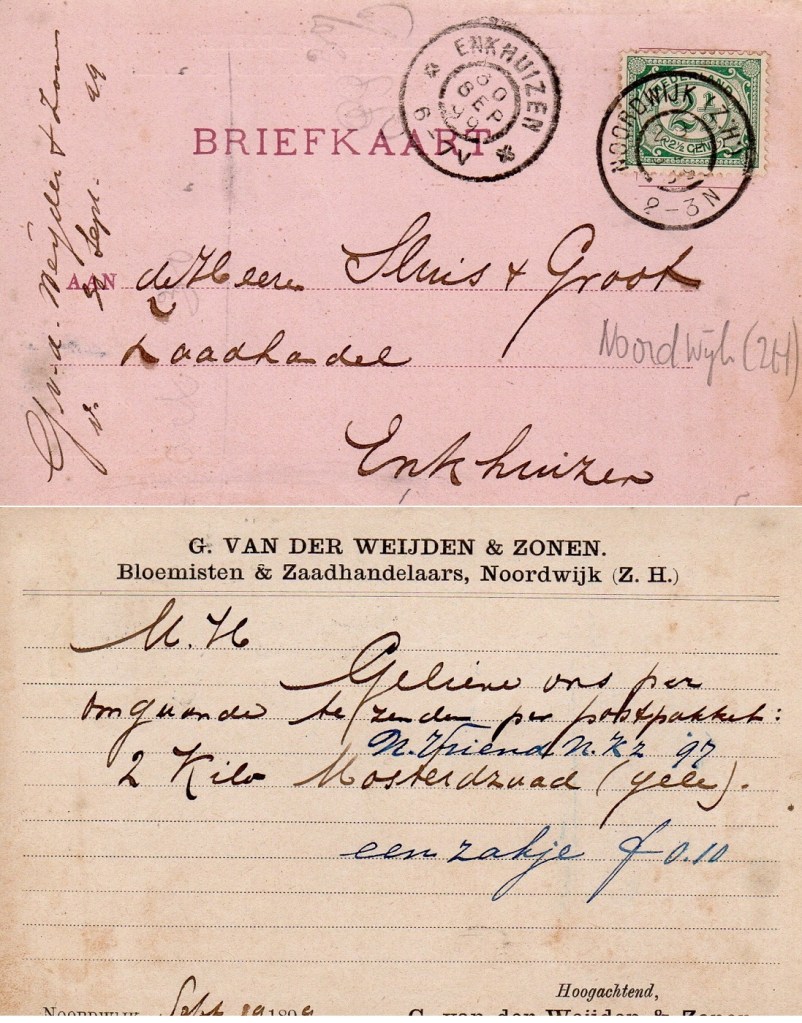 BRIEFKAART
ENKHUIZEN
30 SEP 99
6-7V
NEDERLAND
2½
NOORDWIJK (Z:H)
2-3N
G. v. d. Weijden & Zonen
Sept. 99
AAN de Heeren Sluis & Groot
Zaadhandel
Noordwijk (ZH)
Enkhuizen
G. VAN DER WEIJDEN & ZONEN.
Bloemisten & Zaadhandelaars, Noordwijk (Z. H.)
M. H
Gelieve ons per
omgaande te zenden per postpakket:
N. Vriend N. Kz '97
2 Kilo Mosterdzaad (gele).
een zakje f 0.10
Hoogachtend,
NOORDWIJK, Sept. 1899
G. van der Weijden & Zonen